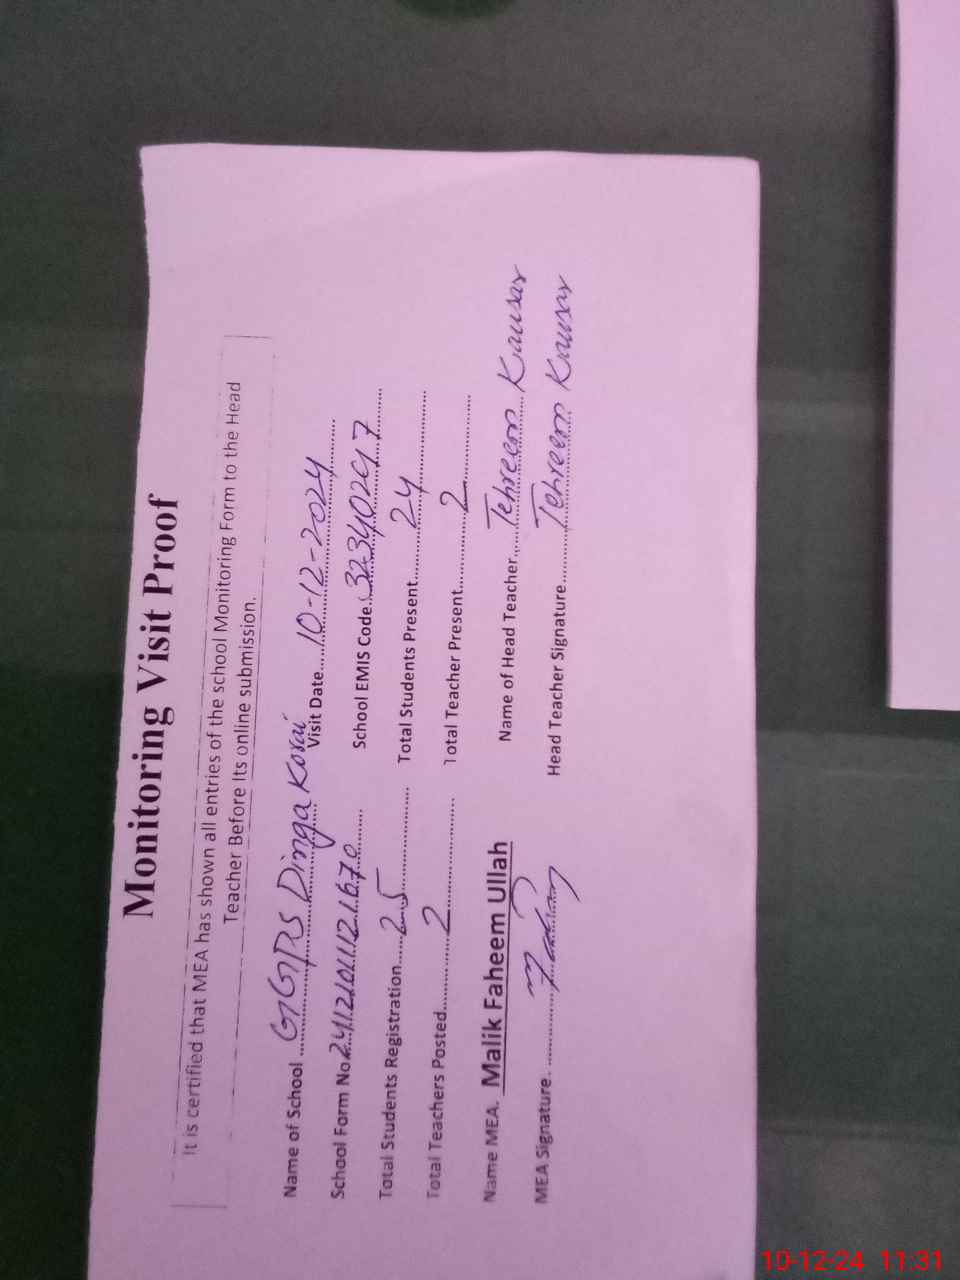 Monitoring Visit Proof
It is certified that MEA has shown all entries of the school Monitoring Form to the Head
Teacher Before Its online submission.
Name of School GGPS Dinga Korai Visit Date 10-12-2024
School Form No 241210112167 School EMIS Code 32340297
Total Students Registration 25 Total Students Present 24
Total Teachers Posted 2 Total Teacher Present 2
Name MEA. Malik Faheem Ullah Name of Head Teacher Tehreem Kausar
MEA Signature. Head Teacher Signature Tehreem Kausar
10-12-24 11:31